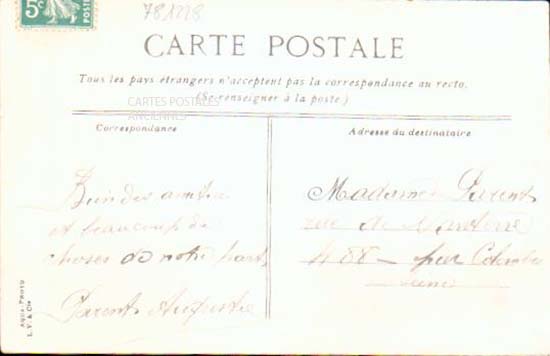 5c
POSTES
781228
CARTE POSTALE
Tous les pays étrangers n'acceptent pas la correspondance au recto.
(Se renseigner à la poste.)
CARTES POSTALES
ANCIENNES
Correspondance
Bien des amitiés
et beaucoup de
choses de notre part
Parents Augustie
Adresse du destinataire
Madame Parent
rue de
par Colombes
Seine
AQUA-PHOTO
L. V. & Cie